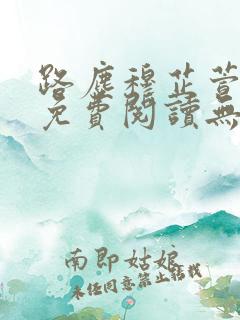 路塵穆芷萱
免費閱讀無
南即姑娘
未经同意禁止转载